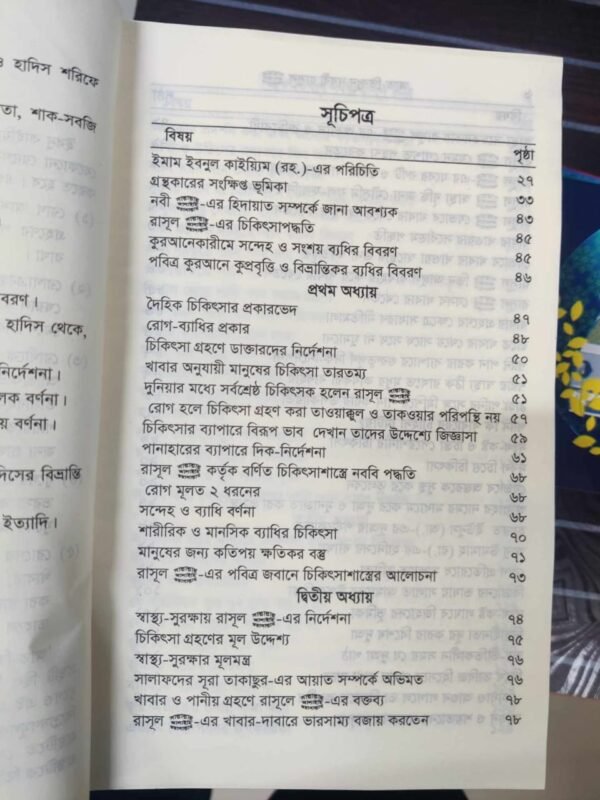 ৪ হাদিস শরিফে
তা, শাক-সবজি
বরণ।
হাদিস থেকে,
নির্দেশনা।
লক বর্ণনা।
য় বর্ণনা।
দিসের বিভ্রান্তি
ইত্যাদি।
সূচিপত্র
বিষয় পৃষ্ঠা
ইমাম ইবনুল কাইয়্যিম (রহ.)-এর পরিচিতি ২৭
গ্রন্থকারের সংক্ষিপ্ত ভূমিকা ৩৩
নবী -এর হিদায়াত সম্পর্কে জানা আবশ্যক ৪৩
রাসূল -এর চিকিৎসাপদ্ধতি ৪৫
কুরআনেকারীমে সন্দেহ ও সংশয় ব্যধির বিবরণ ৪৫
পবিত্র কুরআনে কুপ্রবৃত্তি ও বিভ্রান্তিকর ব্যধির বিবরণ ৪৬
প্রথম অধ্যায়
দৈহিক চিকিৎসার প্রকারভেদ ৪৭
রোগ-ব্যাধির প্রকার ৪৮
চিকিৎসা গ্রহণে ডাক্তারদের নির্দেশনা ৫০
খাবার অনুযায়ী মানুষের চিকিৎসা তারতম্য ৫১
দুনিয়ার মধ্যে সর্বশ্রেষ্ঠ চিকিৎসক হলেন রাসূল ৫১
রোগ হলে চিকিৎসা গ্রহণ করা তাওয়াক্কুল ও তাকওয়ার পরিপন্থি নয় ৫৭
চিকিৎসার ব্যাপারে বিরূপ ভাব দেখান তাদের উদ্দেশ্যে জিজ্ঞাসা ৫৯
পানাহারের ব্যাপারে দিক-নির্দেশনা ৬১
রাসূল কর্তৃক বর্ণিত চিকিৎসাশাস্ত্রে নববি পদ্ধতি ৬৮
রোগ মূলত ২ ধরনের ৬৮
সন্দেহ ও ব্যাধি বর্ণনা ৬৮
শারীরিক ও মানসিক ব্যাধির চিকিৎসা ৭০
মানুষের জন্য কতিপয় ক্ষতিকর বস্তু ৭১
রাসূল -এর পবিত্র জবানে চিকিৎসাশাস্ত্রের আলোচনা ৭৩
দ্বিতীয় অধ্যায়
স্বাস্থ্য-সুরক্ষায় রাসূল -এর নির্দেশনা ৭৪
চিকিৎসা গ্রহণের মূল উদ্দেশ্য ৭৫
স্বাস্থ্য-সুরক্ষার মূলমন্ত্র ৭৬
সালাফদের সূরা তাকাছুর-এর আয়াত সম্পর্কে অভিমত ৭৬
খাবার ও পানীয় গ্রহণে রাসূলে -এর বক্তব্য ৭৮
রাসূল -এর খাবার-দাবারে ভারসাম্য বজায় করতেন ৭৮